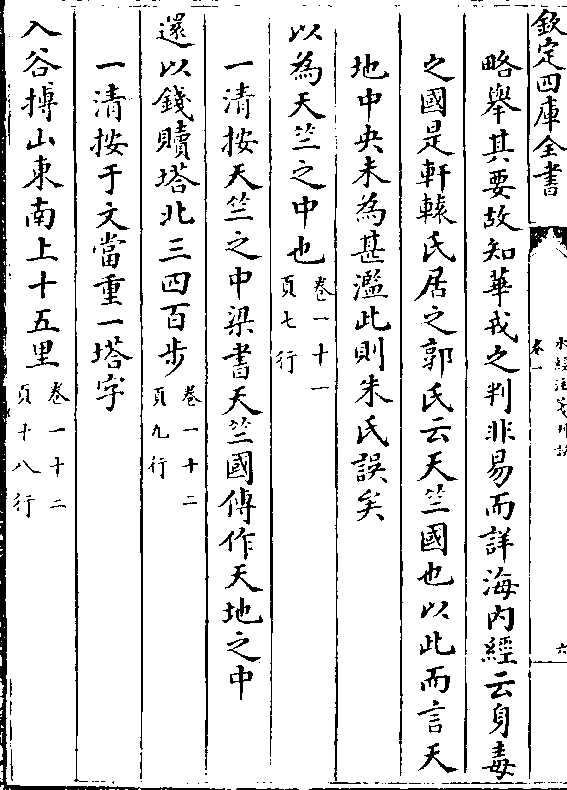 欽定四庫全書
水經注箋刊誤
卷一
六
略舉其要故知華戎之判非易而詳海內經云身毒
之國是軒轅氏居之郭氏云天竺國也以此而言天
地中央未為甚濫此則朱氏誤矣
以為天竺之中也卷一十一頁七行
一清按天竺之中梁書天竺國傳作天地之中
還以錢贖塔北三四百步卷一十二頁九行
一清按于文當重一塔字
入谷摶山東南上十五里卷一十二頁十八行